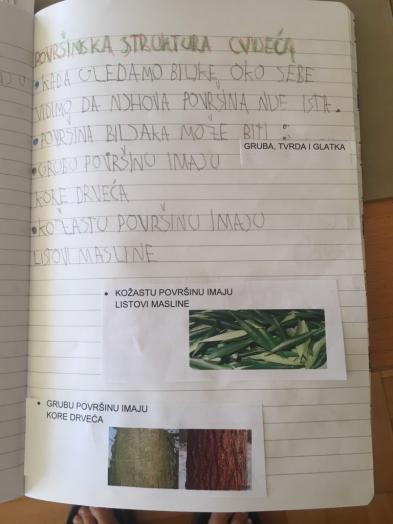 POVRŠINSKA STRUKTURA CVIJEĆA
• KADA GLEDAMO BILJKE OKO SEBE
VIDIMO DA NJIHOVA POVRŠINA NIJE ISTA.
• POVRŠINA BILJAKA MOŽE BITI :
GRUBA, TVRDA I GLATKA
• GRUBU POVRŠINU IMAJU
KORE DRVEĆA
• KOŽASTU POVRŠINU IMAJU
LISTOVI MASLINE
• KOŽASTU POVRŠINU IMAJU
LISTOVI MASLINE
• GRUBU POVRŠINU IMAJU
KORE DRVEĆA